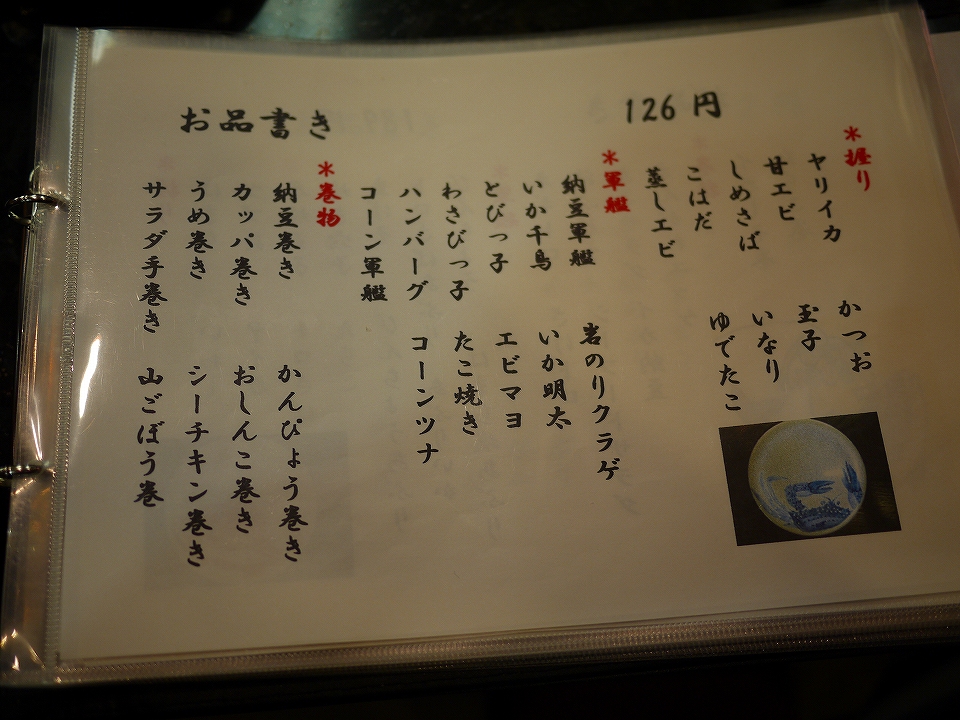 126円
お品書き
＊握り
ヤリイカ
甘エビ
しめさば
こはだ
蒸しエビ
かつお
玉子
いなり
ゆでたこ
＊軍艦
納豆軍艦
いか千鳥
とびっ子
わさびっ子
ハンバーグ
コーン軍艦
岩のりクラゲ
いか明太
エビマヨ
たこ焼き
コーンツナ
＊巻物
納豆巻き
カッパ巻き
うめ巻き
サラダ手巻き
かんぴょう巻き
おしんこ巻き
シーチキン巻き
山ごぼう巻